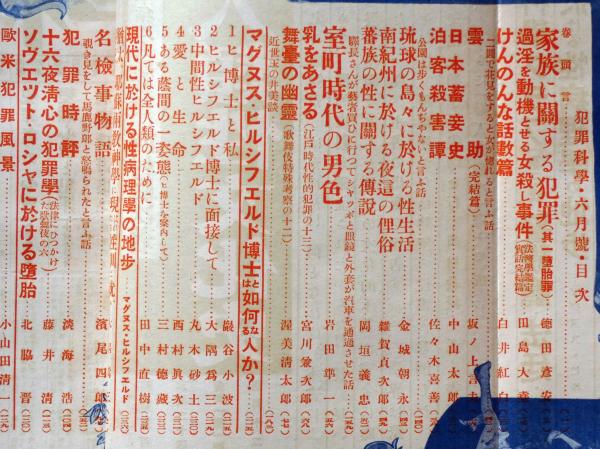 犯罪科學・六月號・目次
卷頭言
家族に關する犯罪(其一墮胎罪) 德田彥安
過淫を動機とせる女殺し事件(法醫學鑑定實話完結篇) 田島大
けんのんな話數篇 白井紅白
二圓で花見をするとが惚れると言ふ話
雲助 坂ノ上言夫
日本蓄妾史(完結篇) 中山太郎
泊客殺害譚 佐々木喜善
公園は步くもんぢやないと言ふ話
琉球の島々に於ける性生活 金城朝永
南紀州に於ける夜這の俚俗 雜賀貞次郎
蕃族の性に關する傳說 岡垣義忠
驛長さんが藝者買ひに行つてシヤツポと眼鏡と外套が汽車を通過させた話
室町時代の男色 岩田準一
乳をあさる(江戶時代性的犯罪の十三) 宮川兼次郎
舞臺の幽靈(歌舞伎特殊考察の十二) 渥美淸太郎
近世玉の井美談
マグヌス・ヒルシフエルド博士とは如何なる人か?
1 ヒ博士と私 巖谷小波
2 ヒルシフエルド博士に面接して 大隅爲三
3 中間性ヒルシフエルド 丸木砂土
4 愛と生命 西村眞次
5 ある蔭間の一姿態(ヒ博士を案内して) 三村德藏
6 凡ては全人類のために 田中直樹
現代に於ける性病理學の地步 マグヌス・ヒルシフエルド
名檢事物語 濱尾四郎
覗き見をして馬鹿野郎と怒鳴られたと言ふ話
犯罪時評 淡海浩
十六夜淸心の犯罪學 藤井淸
ソヴエツト・ロシヤに於ける墮胎 北脇晉
歐米犯罪風景 小山田淸一